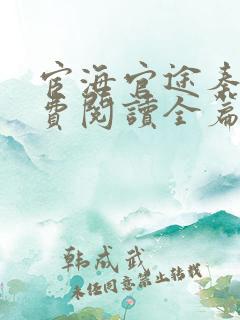 宦海官途秦
费阅读全篇
韩成武
未经同意禁止转载